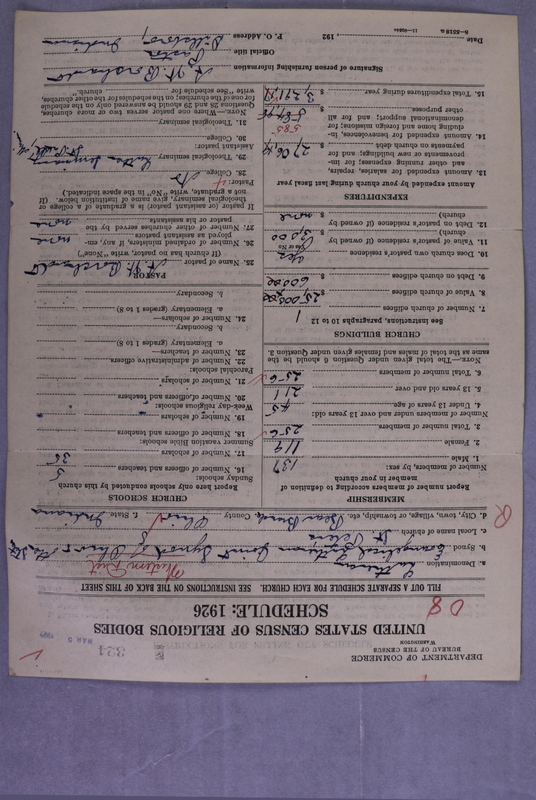 DEPARTMENT OF COMMERCE
BUREAU OF THE CENSUS
WASHINGTON
324
MAR 5
UNITED STATES CENSUS OF RELIGIOUS BODIES
SCHEDULE: 1926
FILL OUT A SEPARATE SCHEDULE FOR EACH CHURCH. SEE INSTRUCTIONS ON THE BACK OF THIS SHEET
a. Denomination Lutheran
Western Dist
b. Synod Evangelical Lutheran Joint Synod of Ohio
c. Local name of church St Peters
d. City, town, village, or township, etc. Bear Branch County Ohio f. State Indiana
MEMBERSHIP
Report number of members according to definition of member in your church
Number of members, by sex:
1. Male 137
2. Female 119
3. Total number of members 256
Number of members under and over 13 years old:
4. Under 13 years of age 45
5. 13 years old and over 211
6. Total number of members 256
NOTE.—The total given under Question 6 should be the same as the total of males and females given under Question 3.
CHURCH BUILDINGS
See instructions, paragraphs 10 to 12
7. Number of church edifices 1
8. Value of church edifices $
9. Debt on church edifices $
10. Does church own pastor's residence
(Yes or No)
11. Value of pastor's residence (if owned by church) $
12. Debt on pastor's residence (if owned by church) $ none
EXPENDITURES
Amount expended by your church during last fiscal year
13. Amount expended for salaries, repairs, and other running expense; for improvements or new buildings; and for payments on church debt $
14. Amount expended for benevolences, including home and foreign missions; for denominational support; and for all other purposes $
585
15. Total expenditures during year $
CHURCH SCHOOLS
Report here only schools conducted by this church
Sunday schools:
16. Number of officers and teachers 5
17. Number of scholars 36
Summer vacation Bible schools:
18. Number of officers and teachers
19. Number of scholars
Week-day religious schools:
20. Number of officers and teachers
21. Number of scholars
Parochial schools:
22. Number of administrative officers
23. Number of teachers—
a. Elementary (grades 1 to 8)
b. Secondary
24. Number of scholars—
a. Elementary (grades 1 to 8)
b. Secondary
PASTOR
25. Name of pastor
(If church has no pastor, write "None")
26. Number of ordained ministers, if any, employed as assistant pastors none
27. Number of other churches served by the pastor or his assistants none
If pastor (or assistant pastor) is a graduate of a college or theological seminary, give name of institution below. (If not a graduate, write "No" in the space indicated.)
Pastor:
28. College No
29. Theological seminary
Assistant pastor:
30. College
31. Theological seminary
NOTE.—Where one pastor serves two or more churches, Questions 28 and 29 should be answered only on the schedule for one of the churches; on the schedules for the other churches, write "See schedule for church."
Signature of person furnishing information
Official title Pastor
P. O. Address Dillsboro, Indiana
Date 192
8—5518 a